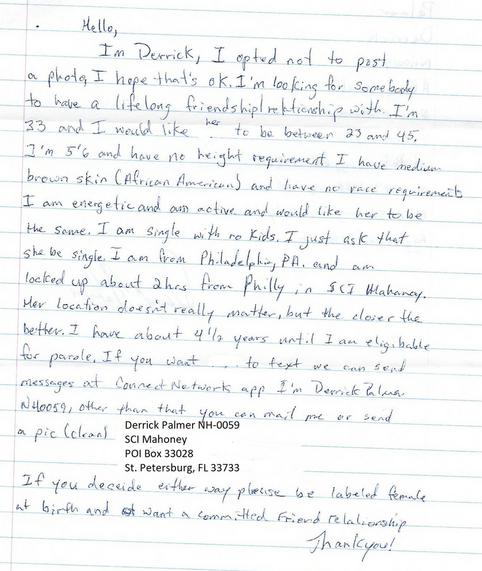 Hello,
Im Derrick, I opted not to post
a photo, I hope that's ok. I'm looking for somebody
to have a lifelong friendship/relationship with. I'm
33 and I would like her to be between 23 and 45.
I'm 5'6 and have no height requirement I have medium
brown skin (African American) and have no race requirement
I am energetic and am active and would like her to be
the same. I am single with no kids. I just ask that
she be single. I am from Philadelphia, PA. and am
locked up about 2hrs from Philly in SCI Mahanoy.
Her location doesn't really matter, but the closer the
better. I have about 4 1/2 years until I am eligibable
for parole. If you want ... to text we can send
messages at Connect Network app I'm Derrick Palmer
NH0059, other than that you can mail me or send
a pic (clean)
Derrick Palmer NH-0059
SCI Mahoney
POI Box 33028
St. Petersburg, FL 33733
If you deceide either way please be labeled female
at birth and want a committed friend relationship
Thankyou!